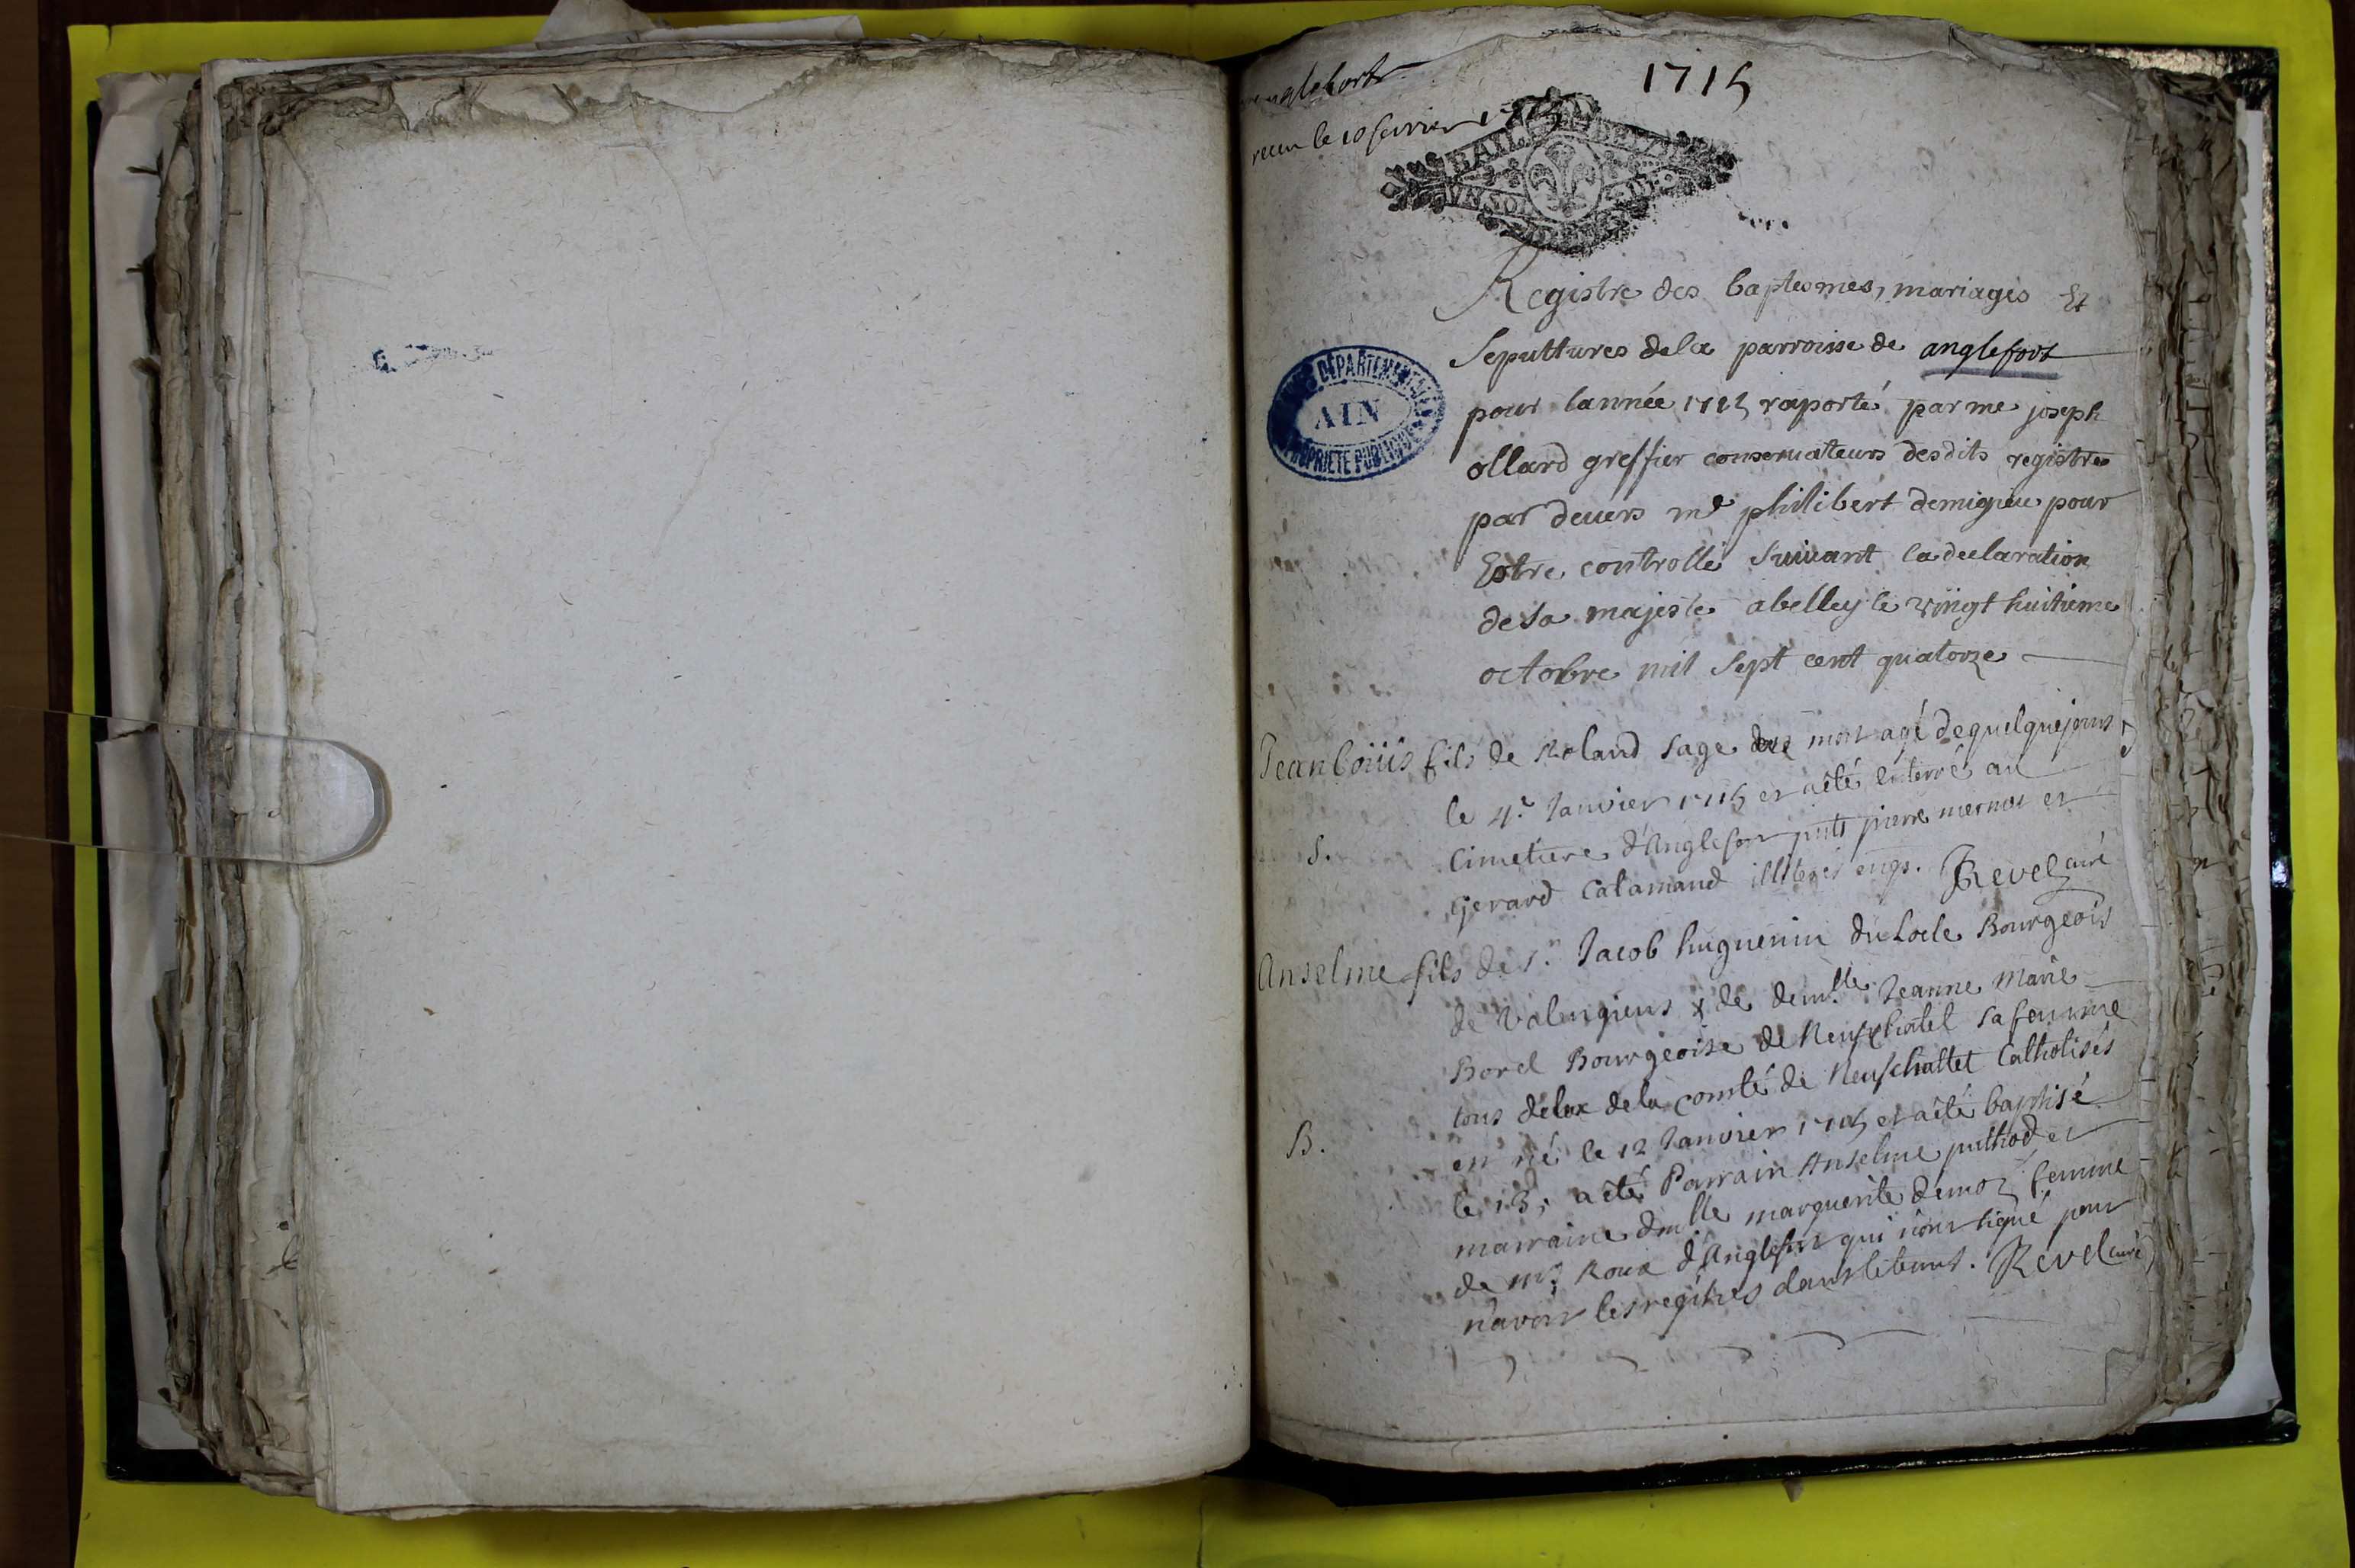 anglefort
1715
receu le 10 fevrier 1715
Registre des baptesmes, mariages Et
Sepultures dela parroisse de anglefort
DEPARTEMENTALES
AIN
PROPRIETE PUBLIQUE
pour lannée 1715 raporté par me joseph
ollard greffier conservateurs desdits registres
par devers me philibert demigieu pour
Estre controllé suivant la declaration
de sa majesté a belley le vingt huitieme
octobre mil sept cent quatorze
Jean loüis fils de Roland Sage mort agé de quelque jours
le 4e Janvier 1715 et a eté enterré au
S. Cimetiere d'Anglefort pnts pierre mermet et
Gerard Calamand illiterés enqs. Revel curé
Anselme fils de Sr. Jacob huguenin du Locle Bourgeois
de Valengiens & de demlle Jeanne Marie
Borel Bourgeoise de Neufchatel sa femme
tous deux dela comté de Neufchattel Catholisés
B. est né le 12 Janvier 1715 et a eté baptisé
le 13, a eté Parrain Anselme puthod et
marraine dmlle marguerite demoz femme
de mr. Roux d'Anglefort qui n'ont signé pour
n'avoir les regitres dans le temps. Revel curé